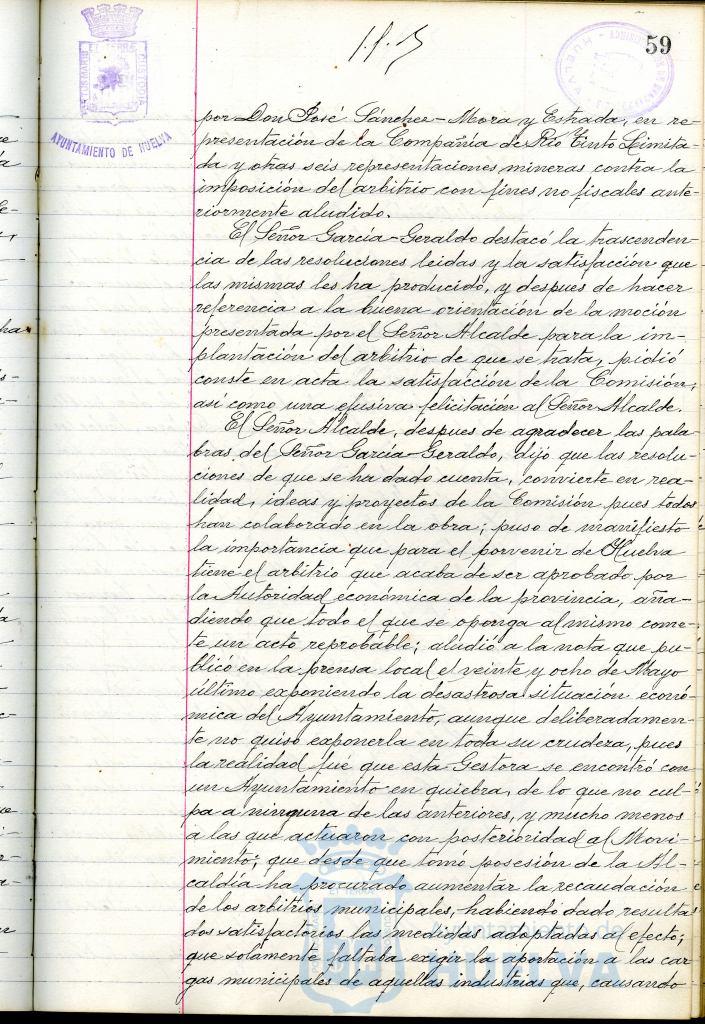 59
AYUNTAMIENTO DE HUELVA
por Don José Sánchez-Mora y Estrada, en re-
presentación de la Compañía de Río Tinto Limita-
da y otras seis representaciones mineras contra la
imposición del arbitrio con fines no fiscales ante-
riormente aludido.
El Señor García-Geraldo destacó la trascenden-
cia de las resoluciones leidas y la satisfacción que
las mismas les ha producido, y despues de hacer
referencia a la buena orientación de la moción
presentada por el Señor Alcalde para la im-
plantación del arbitrio de que se trata, pidió
conste en acta la satisfacción de la Comisión,
así como una efusiva felicitación al Señor Alcalde.
El Señor Alcalde, despues de agradecer las pala
bras del Señor García-Geraldo, dijo que las resolu-
ciones de que se ha dado cuenta, convierte en rea-
lidad, ideas y proyectos de la Comisión pues todos
han colaborado en la obra; puso de manifiesto
la importancia que para el porvenir de Huelva
tiene el arbitrio que acaba de ser aprobado por
la Autoridad económica de la provincia, aña-
diendo que todo el que se oponga al mismo come-
te un acto reprobable; aludió a la nota que pu-
blicó en la prensa local el veinte y ocho de Mayo
último exponiendo la desastrosa situación econó-
mica del Ayuntamiento, aunque deliberadamen-
te no quiso exponerla en toda su crudeza, pues
la realidad fué que esta Gestora se encontró con
un Ayuntamiento en quiebra, de lo que no cul-
pa a ninguna de las anteriores, y mucho menos
a las que actuaron con posterioridad al Movi-
miento; que desde que tomó posesión de la Al-
caldía ha procurado aumentar la recaudación
de los arbitrios municipales, habiendo dado resulta
dos satisfactorios las medidas adoptadas al efecto;
que solamente faltaba exigir la aportación a las car
gas municipales de aquellas industrias que, causando
Ayuntamiento de
HUELVA